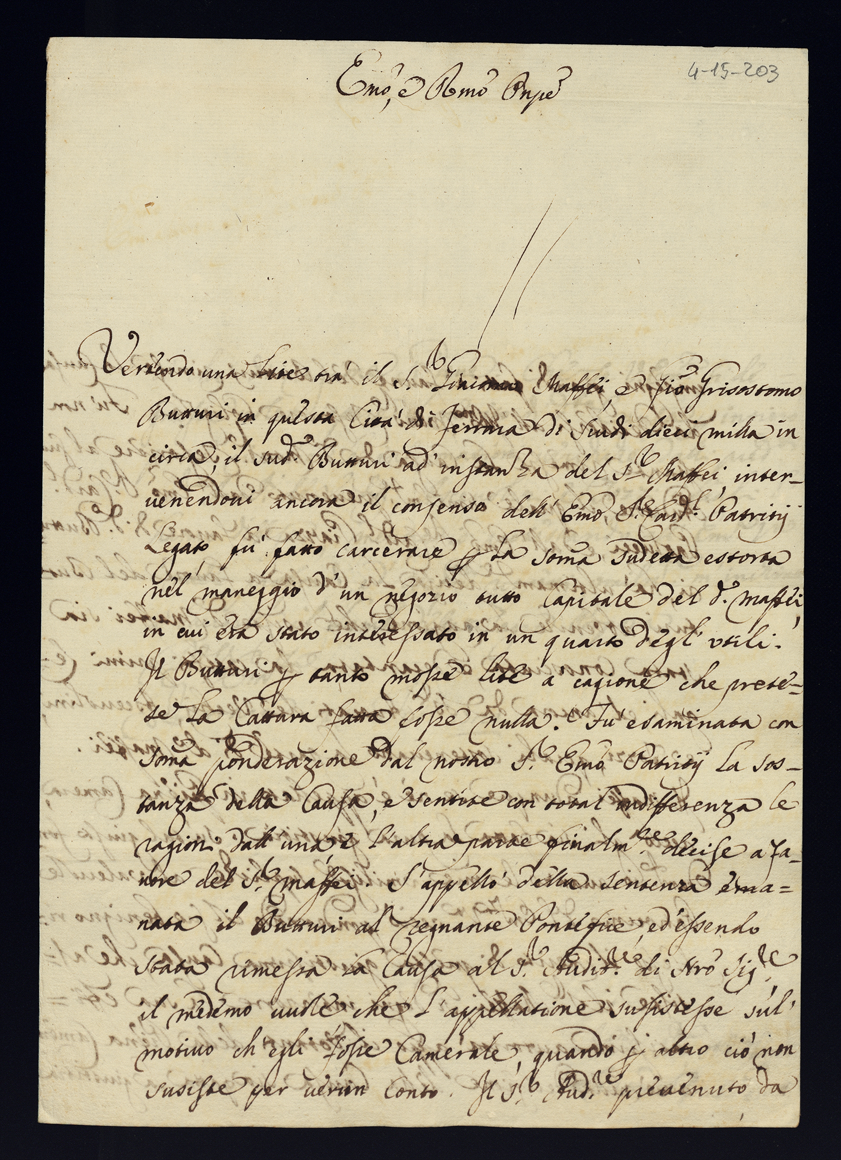 4-15-203
Emõ, e Rmõ Pnpe
Vertendo una Lite trà il S.r Giacomo Maffei, e Gio: Grisostomo
Butturi in questa Città di Ferrara di scudi dieci milla in
circa, il sud.o Butturi ad instanza del S.r Maffei, inter-
uenendoui ancora il consenso dell' Emõ S.r Card.l Patritij
Legato, fu' fatto carcerare p la soma sudetta estorta
nel maneggio d'un negozio tutto Capitale del d.o Maffei,
in cui era stato interessato in un quarto degl' vtili.
Il Butturi p tanto mosse lite a cagione che prete=
se La Cattura fatta fosse nulla. Fu esaminata con
soma ponderazione dal nostro S.r Emõ Patritij La sos-
tanza della Causa, e sentite con total' indifferenza le
ragioni dall' una, e l'altra parte finalm.te decise a fa-
uore del S.r Maffei. S'appellò della sentenza ema=
nata il Butturi al regnante Pontefice, ed essendo
stata rimessa La Causa al S.r Audit.re di Nrõ Sig.re
il medemo uuole che l'appellatione susistesse sul'
motiuo ch'egli fosse Camerale, quando p altro ciò non
susiste per uerun conto. Il S.r Aud.re preuenuto da